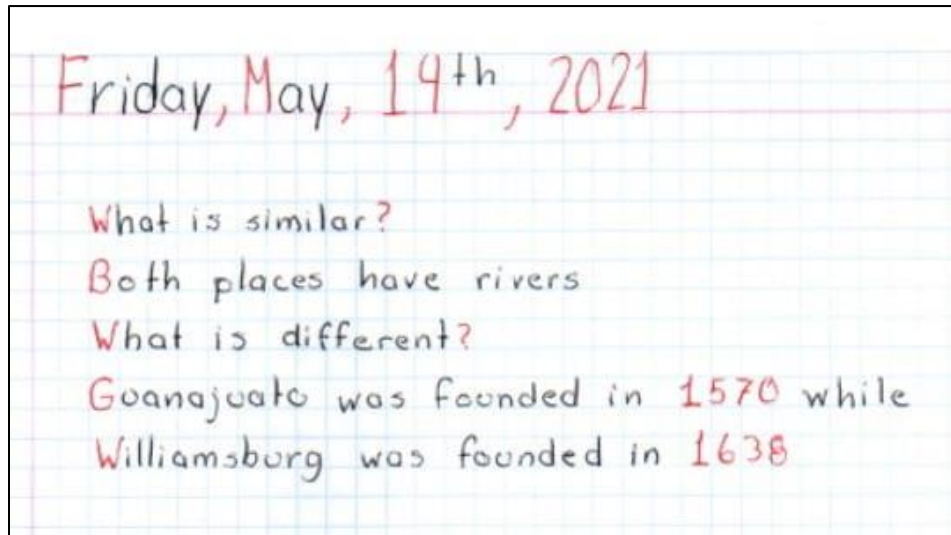 Friday, May, 14th, 2021
What is similar?
Both places have rivers
What is different?
Guanajuato was founded in 1570 while
Williamsburg was founded in 1638